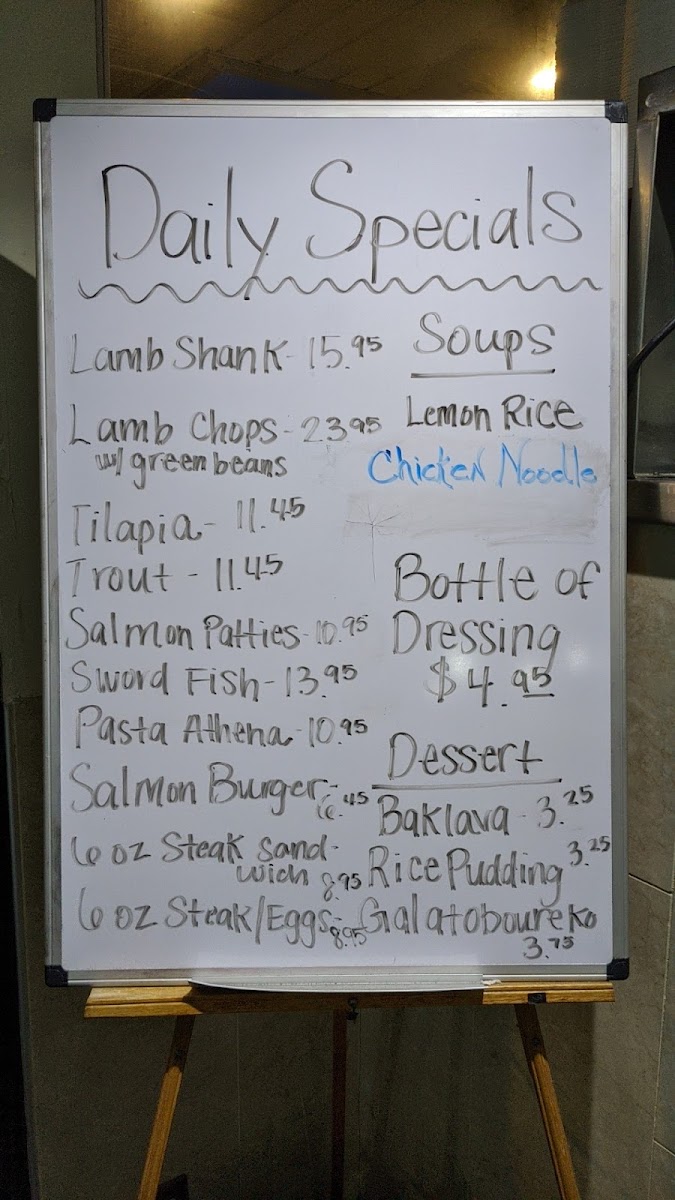 Daily Specials
Lamb Shank - 15.95
Lamb Chops - 23.95
w/ green beans
Tilapia - 11.45
Trout - 11.45
Salmon Patties - 10.95
Sword Fish - 13.95
Pasta Athena - 10.95
Salmon Burger - 6.45
6 oz Steak Sand-
wich 8.95
6 oz Steak/Eggs - 8.95
Soups
Lemon Rice
Chicken Noodle
Bottle of
Dressing
$4.95
Dessert
Baklava - 3.25
Rice Pudding 3.25
Galatoboureko
3.75